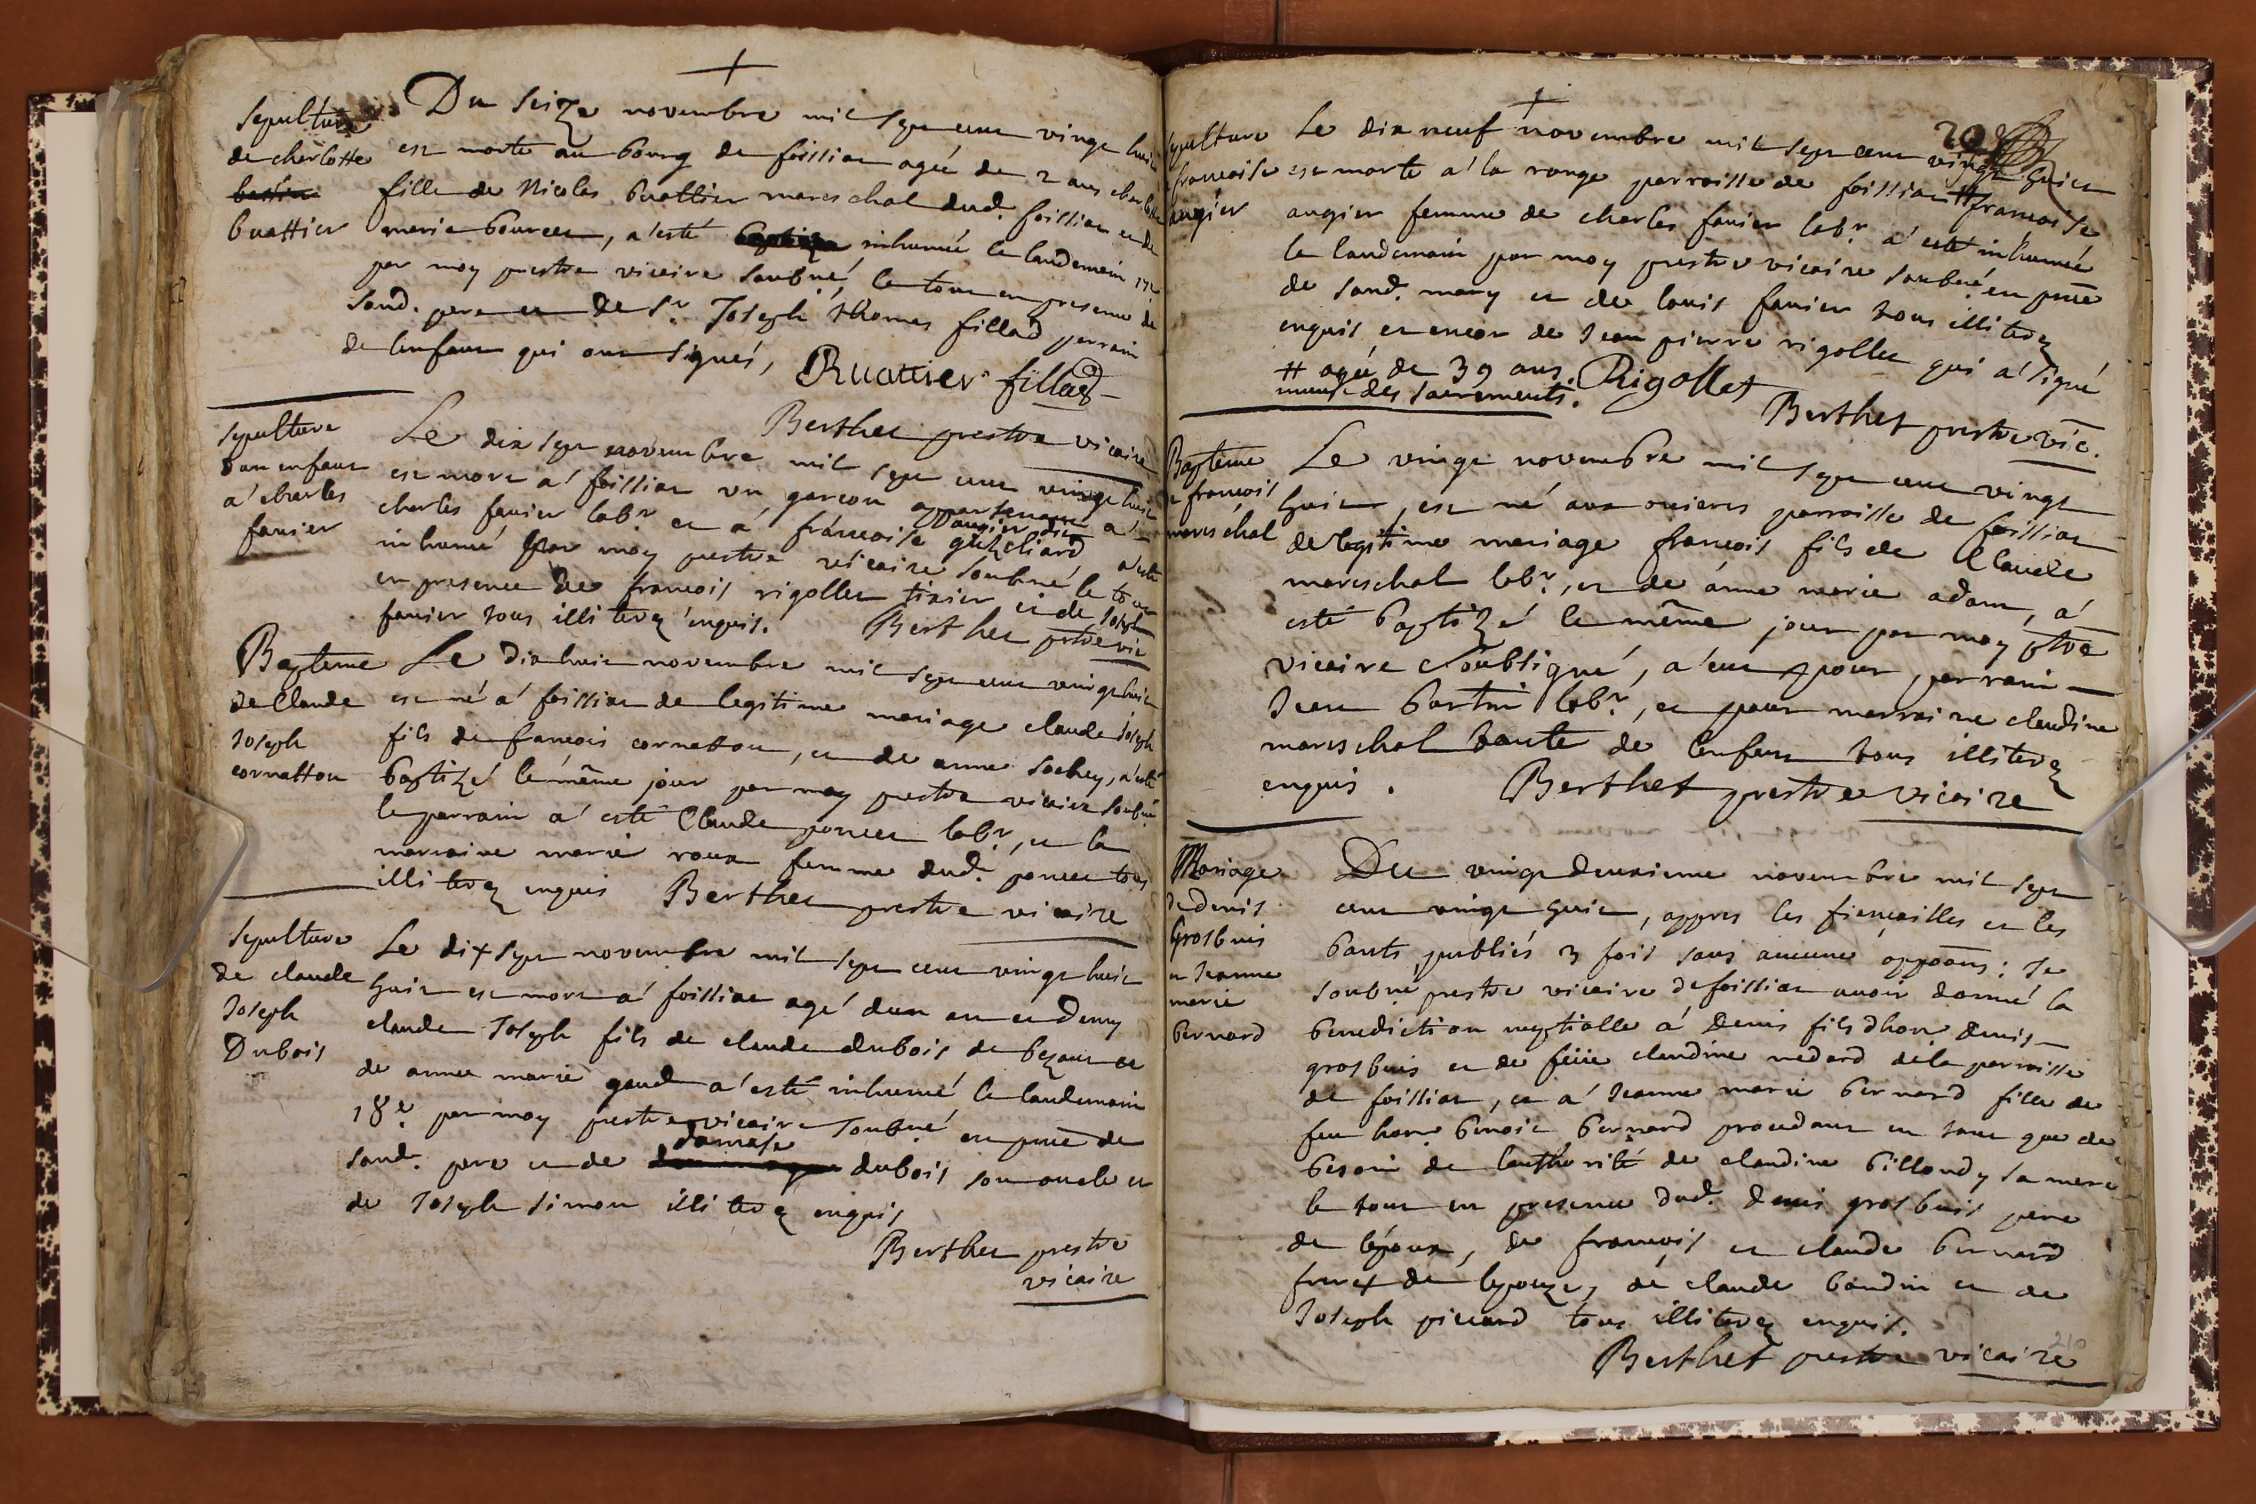 Sepulture
de cherlotte
buattier
Du seize novembre mil sept cent vingt huit
est morte au bourg de foissiat agée de 2 ans cherlotte
fille de Nicolas buattier mareschal dud. foissiat et de
marie bourcet, a esté inhumée le landemain 17e
par moy prestre vicaire soubné, le tout en presence de
sond. pere et de Sr Joseph thomas fillad parrain
de lenfant qui ont signés, Buattier fillad
Berthet prestre vicaire
Sepulture
dun enfant
a charles
favier
Le dix sept novembre mil sept cent vingt huit
est mort a foissiat un garcon appartenant a
charles favier labr et a francoise augier dit guichard a esté
inhumé par moy prestre vicaire soubné le tout
en presence de francois rigollet tixier et de Joseph
favier tous illiterez enquis. Berthet prstre vic
Bapteme
de Claude
Joseph
cornatton
Le dix huit novembre mil sept cent vingt huit
est né a foissiat de legitime mariage claude Joseph
fils de francois cornatton, et de anne sochey, a esté
baptizé le même jour par moy prestre vicaire soubné
le parrain a esté Claude poncet labr, et la
marraine marie roux femme dud. poncet tous
illiterez enquis Berthet prestre vicaire
Sepulture
de claude
Joseph
Dubois
Le dix sept novembre mil sept cent vingt huit
huit est mort a foissiat agé dun an et demy
claude Joseph fils de claude dubois de bezant et
de anne marie gaud a esté inhumé le landemain
18e par moy prestre vicaire soubné en pnce de
sond. pere et de damase dubois son oncle et
de Joseph simon illiterez enquis
Berthet prestre
vicaire
20
Sepulture
francoise
augier
Le dix neuf novembre mil sept cent vingt huit
est morte a la ronge parroisse de foissiat # francoise
augier femme de charles favier labr a esté inhumée
le landemain par moy prestre vicaire soubné en pnce
de sond. mary et de louis favier tous illiterez
enquis et encor de Jean pierre rigollet qui a signé
# agée de 39 ans.
munie des sacrements. Rigollet
Berthet prestre vic.
Bapteme
de francois
mareschal
Le vingt novembre mil sept cent vingt
huit, est né aux onieres parroisse de foissiat
de legitime mariage francois fils de Claude
mareschal labr, et de anne marie adam, a
esté baptizé le même jour par moy ptre
vicaire soubsigné, a eut pour parrain
Jean bertin labr, et pour marraine claudine
mareschal tante de lenfant tous illiterez
enquis. Berthet prestre vicaire
Mariage
de denis
Grosbuis
et Jeanne
marie
bernard
Du vingt deuxieme novembre mil sept
cent vingt huit, appres les fiencailles et les
bants publiés 3 fois sans aucune oppoons: Je
soubné prestre vicaire de foissiat avoir donné la
benediction nuptialle a denis fils dhon. denis
grosbuis et de feüe claudine nedard de la parroisse
de foissiat, et a Jeanne marie bernard fille de
feu hon. benoit bernard procedant en tant que de
besoin de lauthorité de claudine billoudy sa mere
le tout en presence dud. denis grosbuis pere
de lépoux, de francois et claude bernard
freres de lepouze, de claude baudin et de
Joseph picard tous illiterez enquis.
Berthet prestre vicaire
210